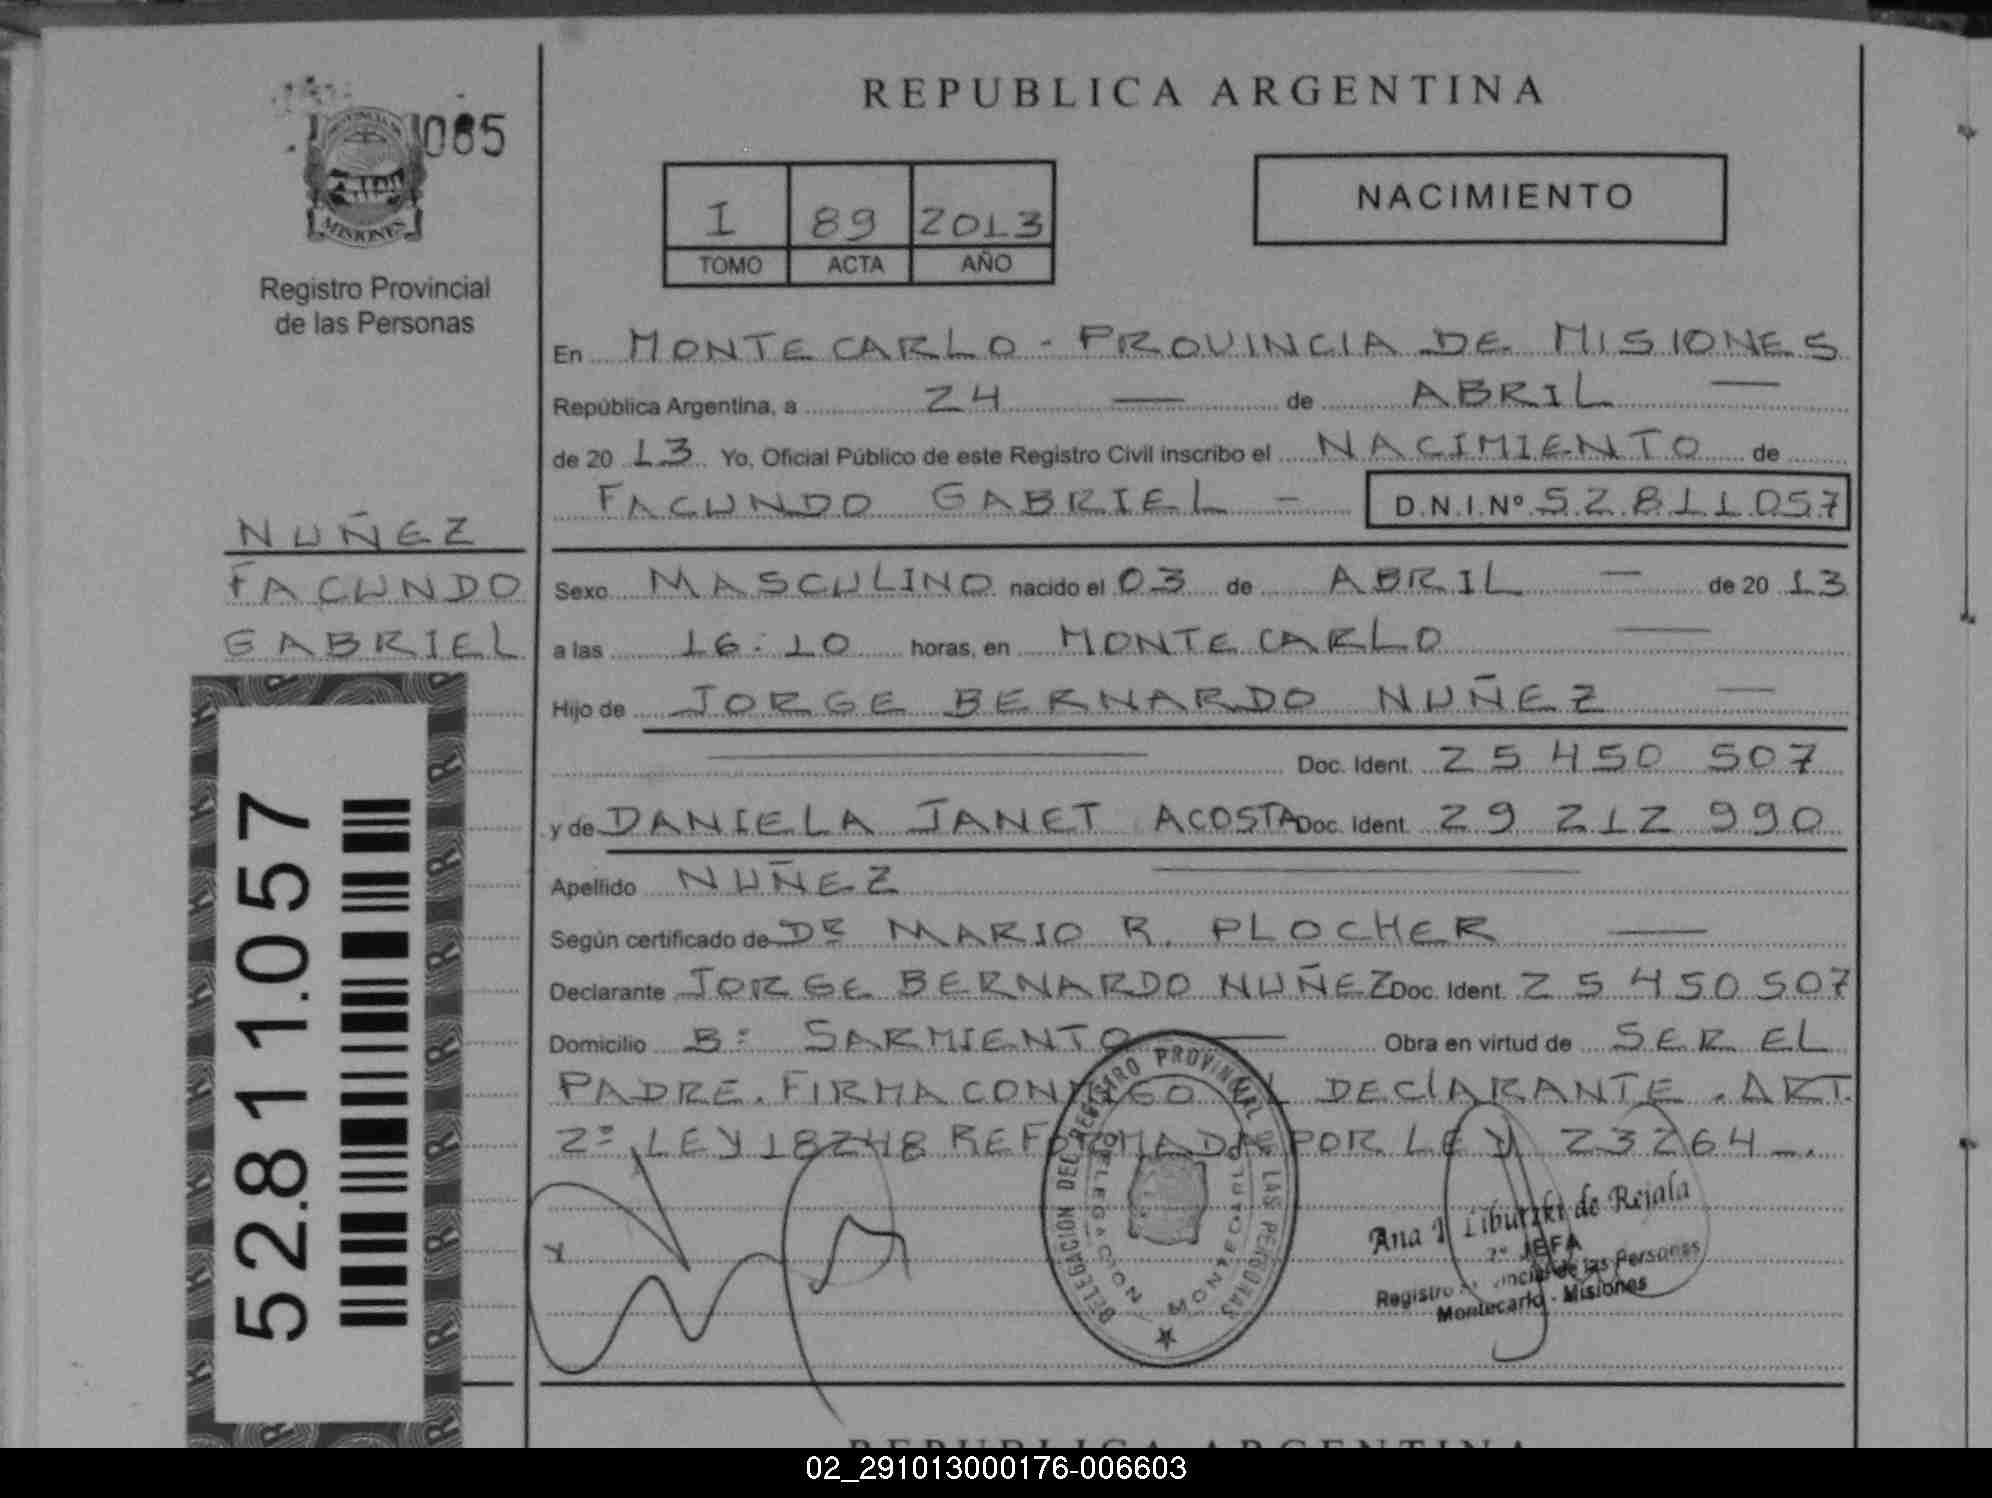 REPUBLICA ARGENTINA
085
MISIONES
Registro Provincial
de las Personas
NACIMIENTO
I 89 2013
TOMO ACTA AÑO
En MONTECARLO - PROVINCIA DE MISIONES
República Argentina, a 24 — de ABRIL —
de 20 13 Yo, Oficial Público de este Registro Civil inscribo el NACIMIENTO de
FACUNDO GABRIEL - D.N.I.Nº 52811057
NUÑEZ
FACUNDO
GABRIEL
Sexo MASCULINO nacido el 03 de ABRIL — de 20 13
a las 16:10 horas, en MONTECARLO —
Hijo de JORGE BERNARDO NUÑEZ —
Doc. Ident. 25 450 507
y de DANIELA JANET ACOSTA Doc. Ident. 29 212 990
Apellido NUÑEZ
Según certificado de Dr MARIO R. PLOCHER —
Declarante JORGE BERNARDO NUÑEZ Doc. Ident. 25 450 507
Domicilio Bº SARMIENTO — Obra en virtud de SER EL
PADRE. FIRMA CONMIGO EL DECLARANTE. ART.
2º LEY 18248 REFORMADA POR LEY 23264 -.
52.811.057
DELEGACION DEL REGISTRO PROVINCIAL DE LAS PERSONAS
DELEGACION
Ana Liburzki de Rejala
2º JEFA
Registro Provincial de las Personas
Montecarlo - Misiones
REPUBLICA ARGENTINA
02_291013000176-006603